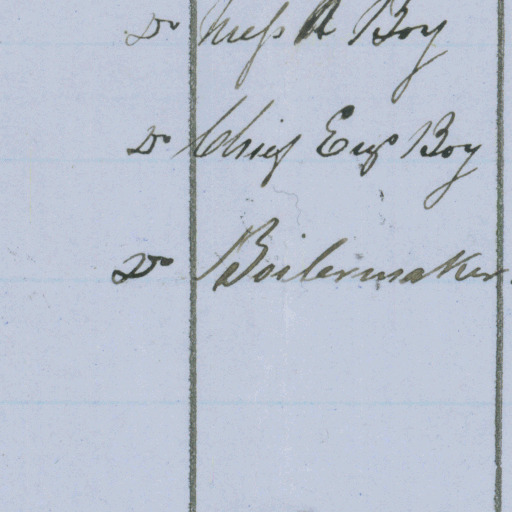 Do Mess R Boy
Do Chief Eng Boy
Do Boilermaker